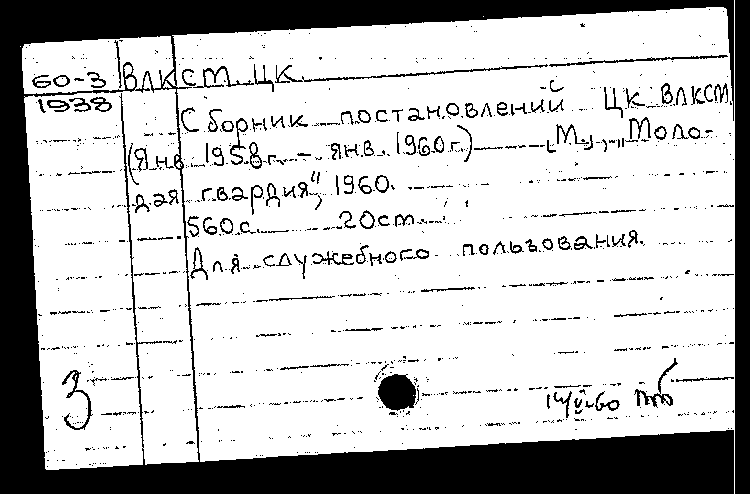 60-3 ВЛКСМ. ЦК.
1938
Сборник постановлений ЦК ВЛКСМ
(Янв. 1958г. - янв. 1960г.) [М.], „Моло-
дая гвардия", 1960.
560с. 20см.
Для служебного пользования.
3